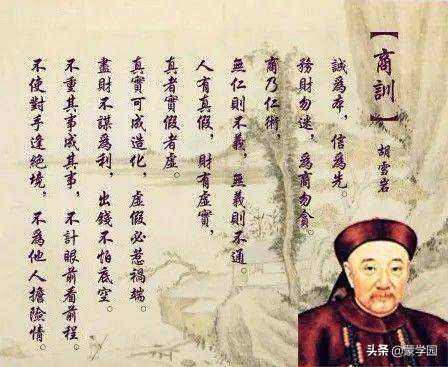 【商訓】
胡雪岩
誠爲本，信爲先。
務財勿迷，爲商勿貪。
商乃仁術，
無仁則不義，無義則不通。
人有真假，財有虛實，
真者實假者虛。
真實可成造化，虛假必惹禍端。
盡財不謀爲利，出錢不怕底空。
不重其事成其事，不計眼前看前程。
不使對手逢絶境，不爲他人擔險情。
头条 @蒙学园